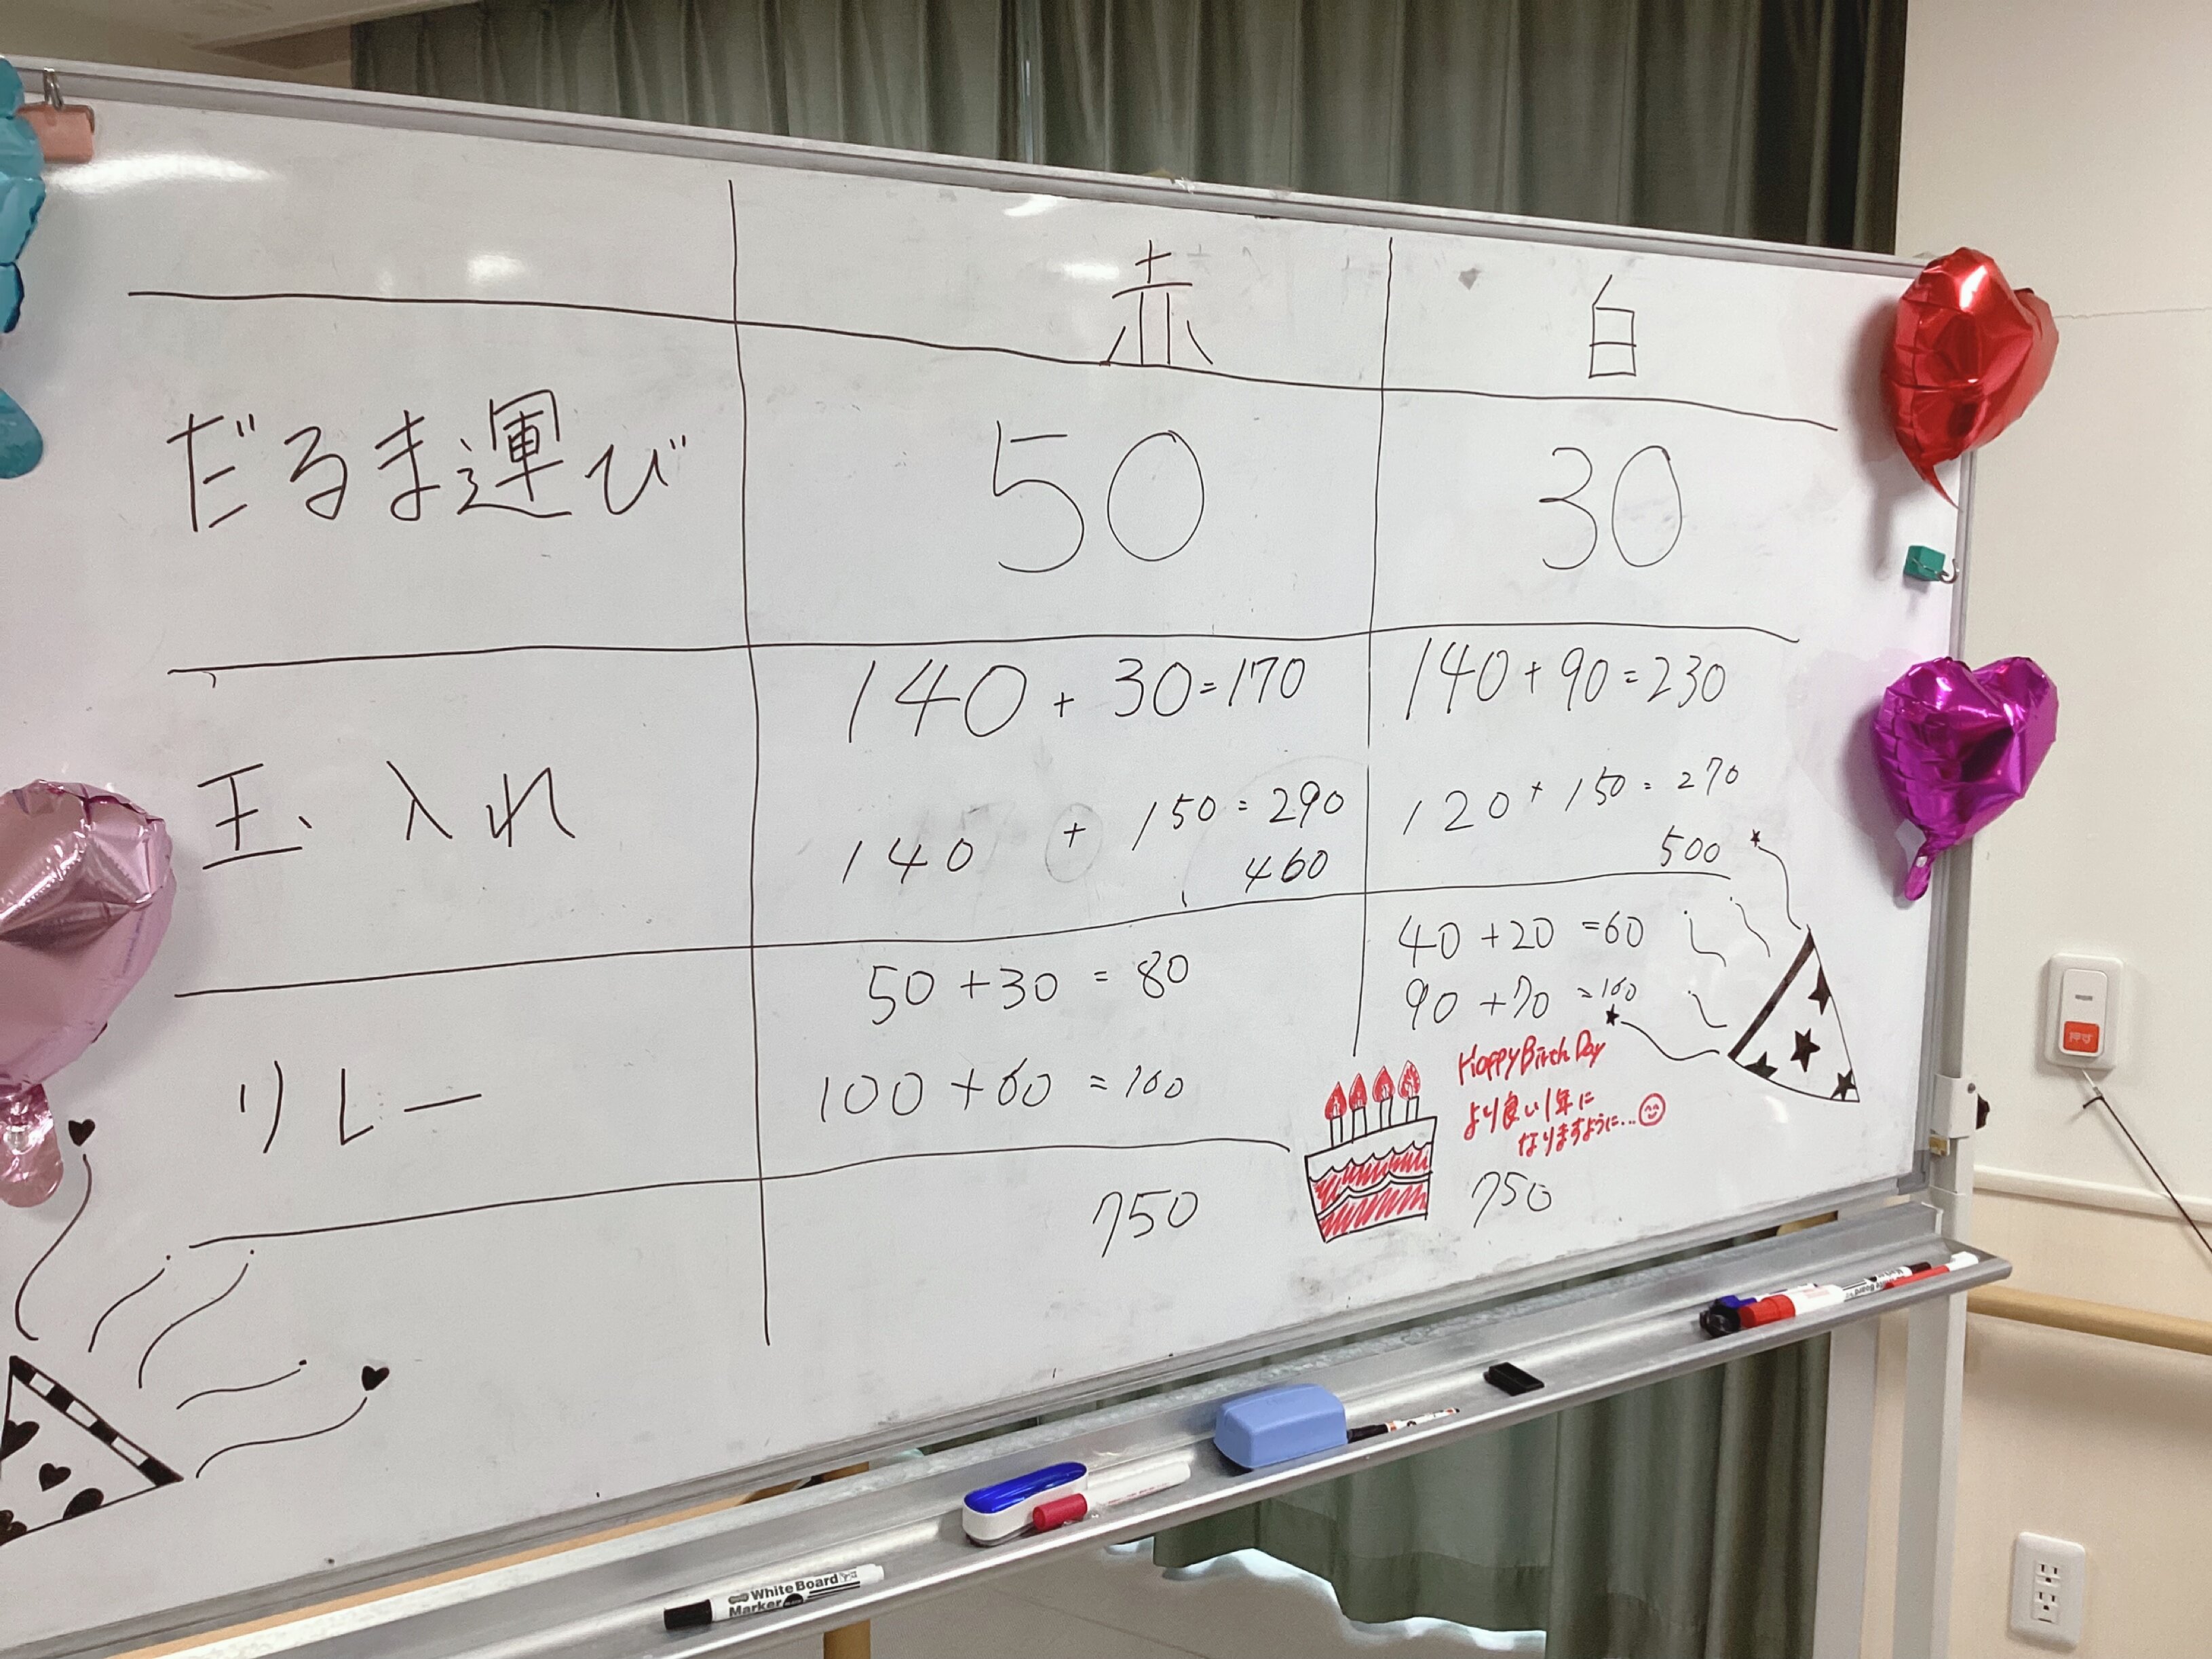 赤 白
だるま運び 50 30
140 + 30 = 170 140 + 90 = 230
玉入れ 140 + 150 = 290 120 + 150 = 270
460 500
50 + 30 = 80 40 + 20 = 60
90 + 70 = 160
リレー 100 + 60 = 160
Happy Birth Day
より良い1年に
なりますように…
750 750
White Board
Marker
押す